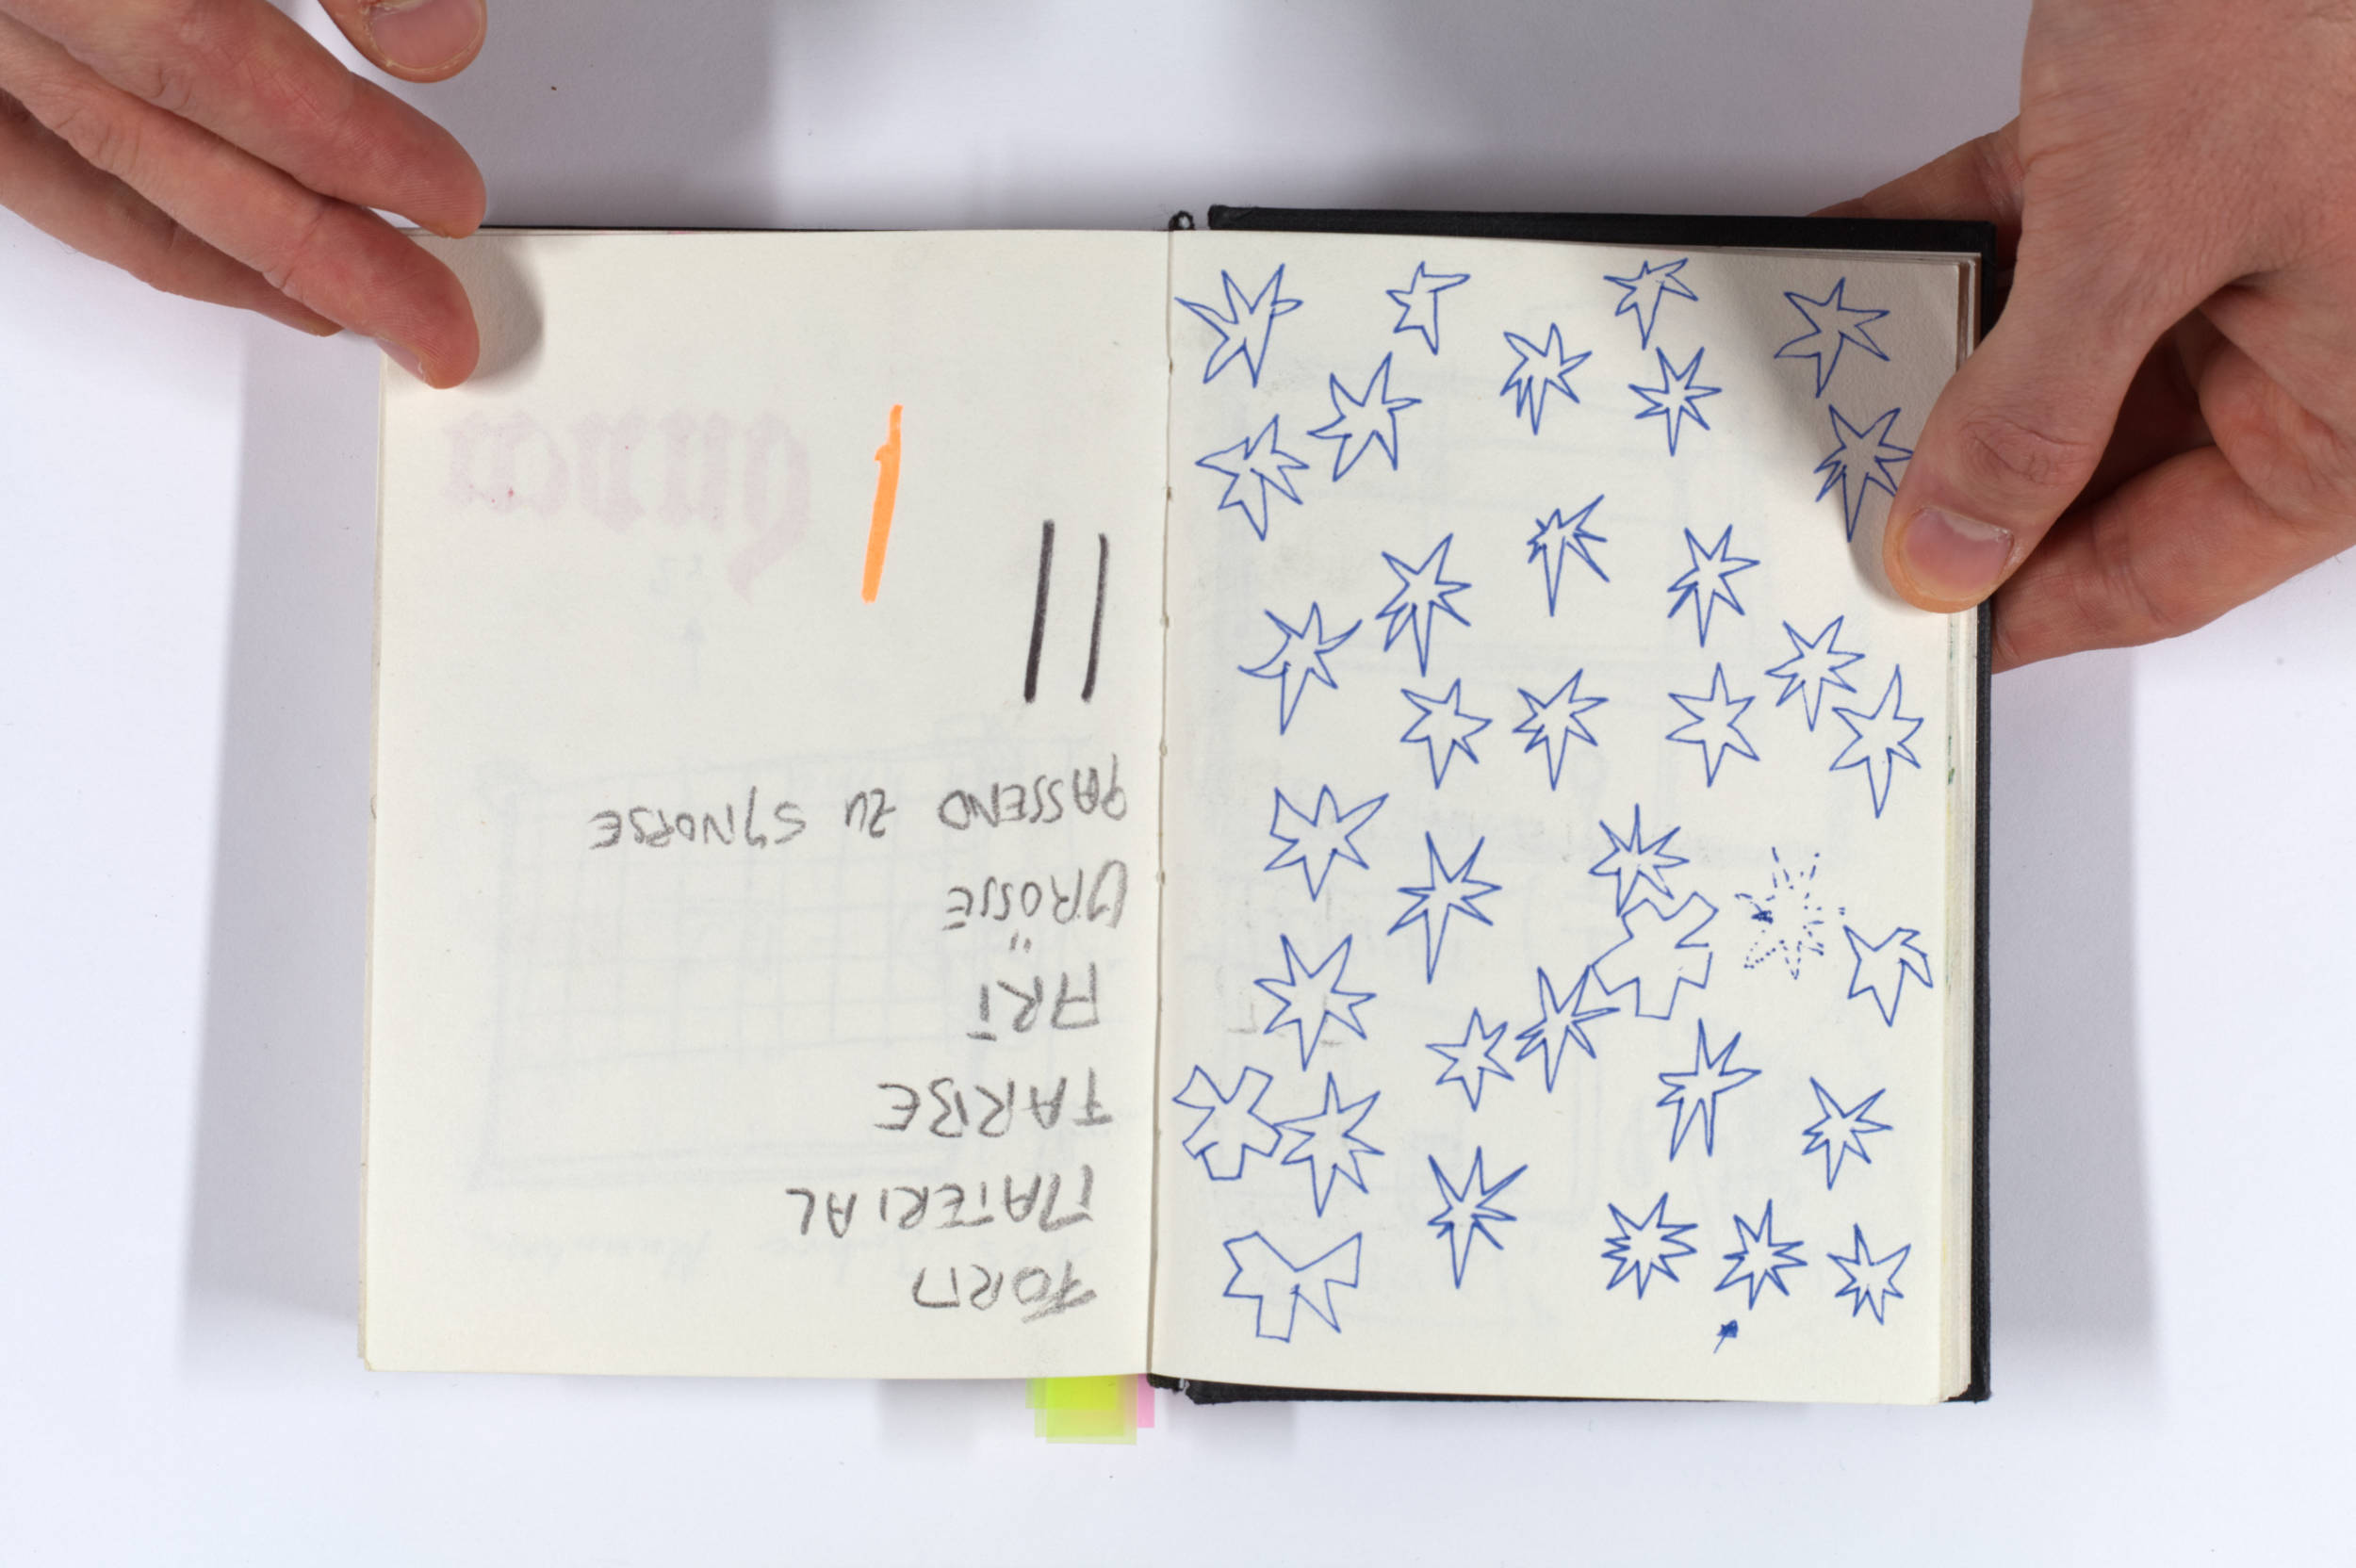 FORM
MATERIAL
FARBE
ART
GRÖSSE
PASSEND ZU SYNOPSE